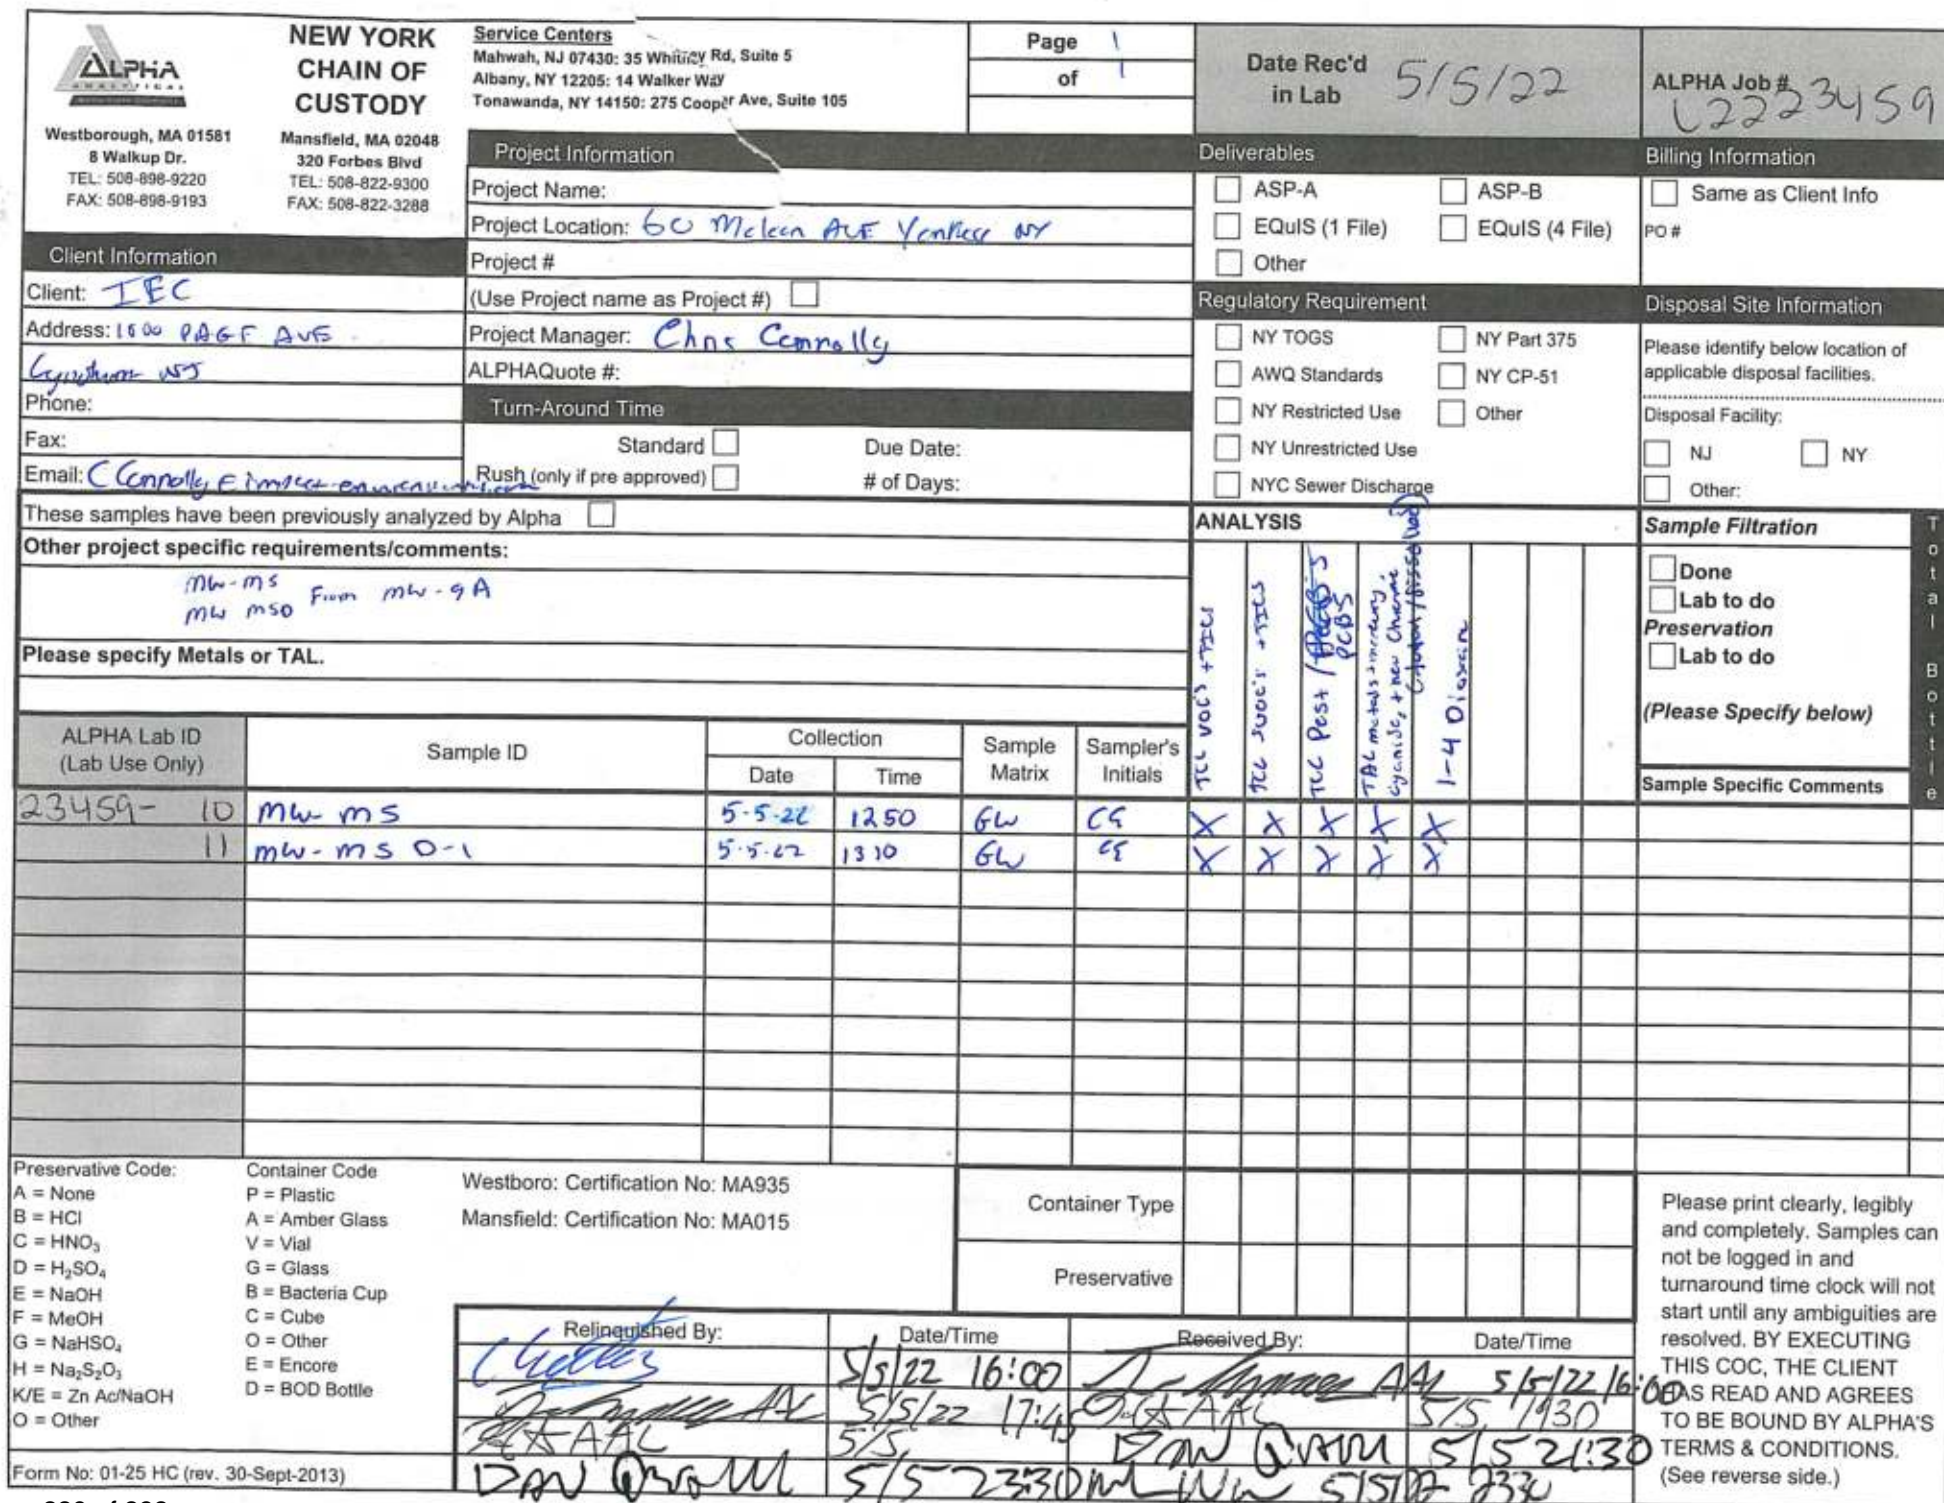 ALPHA
ANALYTICAL
Westborough, MA 01581
8 Walkup Dr.
TEL: 508-898-9220
FAX: 508-898-9193
NEW YORK
CHAIN OF
CUSTODY
Mansfield, MA 02048
320 Forbes Blvd
TEL: 508-822-9300
FAX: 508-822-3288
Service Centers
Mahwah, NJ 07430: 35 Whitney Rd, Suite 5
Albany, NY 12205: 14 Walker Way
Tonawanda, NY 14150: 275 Cooper Ave, Suite 105
Page 1
of 1
Date Rec'd
in Lab 5/5/22
ALPHA Job #
L2223459
Project Information
Project Name:
Project Location: 60 Mclean AVE Yonkers NY
Project #
(Use Project name as Project #)
Project Manager: Chris Connolly
ALPHAQuote #:
Turn-Around Time
Standard Due Date:
Rush (only if pre approved) # of Days:
Client Information
Client: IEC
Address: 1500 PAGE AVE
NJ
Phone:
Fax:
Email: CConnolly
Deliverables
ASP-A ASP-B
EQuIS (1 File) EQuIS (4 File)
Other
Regulatory Requirement
NY TOGS NY Part 375
AWQ Standards NY CP-51
NY Restricted Use Other
NY Unrestricted Use
NYC Sewer Discharge
Billing Information
Same as Client Info
PO #
Disposal Site Information
Please identify below location of
applicable disposal facilities.
Disposal Facility:
NJ NY
Other:
These samples have been previously analyzed by Alpha
Other project specific requirements/comments:
MW-MS
MW MSD From MW-9A
Please specify Metals or TAL.
ANALYSIS
TCL VOC's +TICS
TCL SVOC's +TICS
TCL Pest / PCBS
TAL metals + mercury,
cyanide, + hex Chrome
(total/dissolved)
1-4 Dioxane
Sample Filtration
Done
Lab to do
Preservation
Lab to do
(Please Specify below)
Sample Specific Comments
Total Bottle
ALPHA Lab ID
(Lab Use Only)
Sample ID
Collection
Date Time
Sample
Matrix
Sampler's
Initials
23459- 10 MW-MS 5-5-22 1250 GW CG X X X X X
11 MW-MS D-1 5-5-22 1310 GW CG X X X X X
Preservative Code:
A = None
B = HCl
C = HNO₃
D = H₂SO₄
E = NaOH
F = MeOH
G = NaHSO₄
H = Na₂S₂O₃
K/E = Zn Ac/NaOH
O = Other
Container Code
P = Plastic
A = Amber Glass
V = Vial
G = Glass
B = Bacteria Cup
C = Cube
O = Other
E = Encore
D = BOD Bottle
Westboro: Certification No: MA935
Mansfield: Certification No: MA015
Container Type
Preservative
Relinquished By: Date/Time Received By: Date/Time
5/5/22 16:00 AAL 5/5/22 16:00
AAL 5/5/22 17:45 AAL 5/5 1930
AAL 5/5 DAN 5/5 21:30
DAN 5/5 23:30 5/5/22 2330
Please print clearly, legibly
and completely. Samples can
not be logged in and
turnaround time clock will not
start until any ambiguities are
resolved. BY EXECUTING
THIS COC, THE CLIENT
HAS READ AND AGREES
TO BE BOUND BY ALPHA'S
TERMS & CONDITIONS.
(See reverse side.)
Form No: 01-25 HC (rev. 30-Sept-2013)